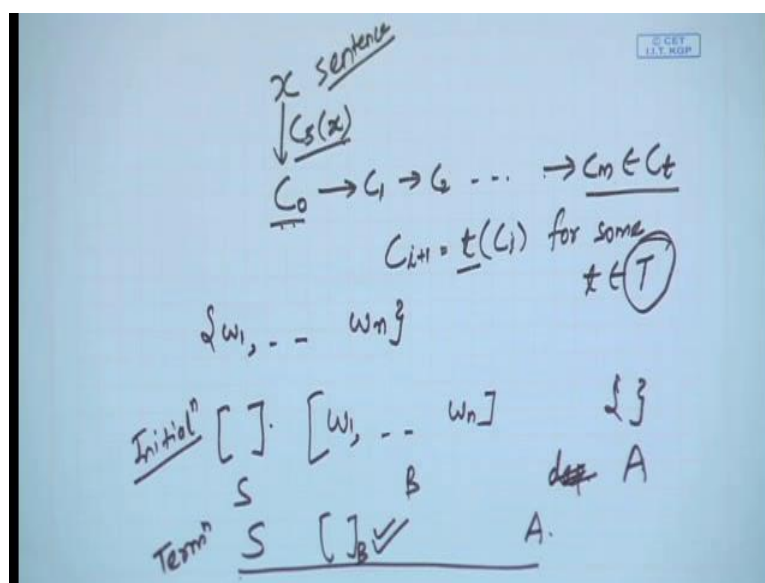 © CET
I.I.T. KGP
x sentence
↓ Cs(x)
C₀ → C₁ → C₂ - - - → Cm ∈ Ct
Ci+1 = t(Ci) for some
t ∈ T
{w₁, - - wn}
Initialⁿ [ ]. [w₁, - - wn] { }
S B A
Termⁿ S [ ]B ✓✓ A.